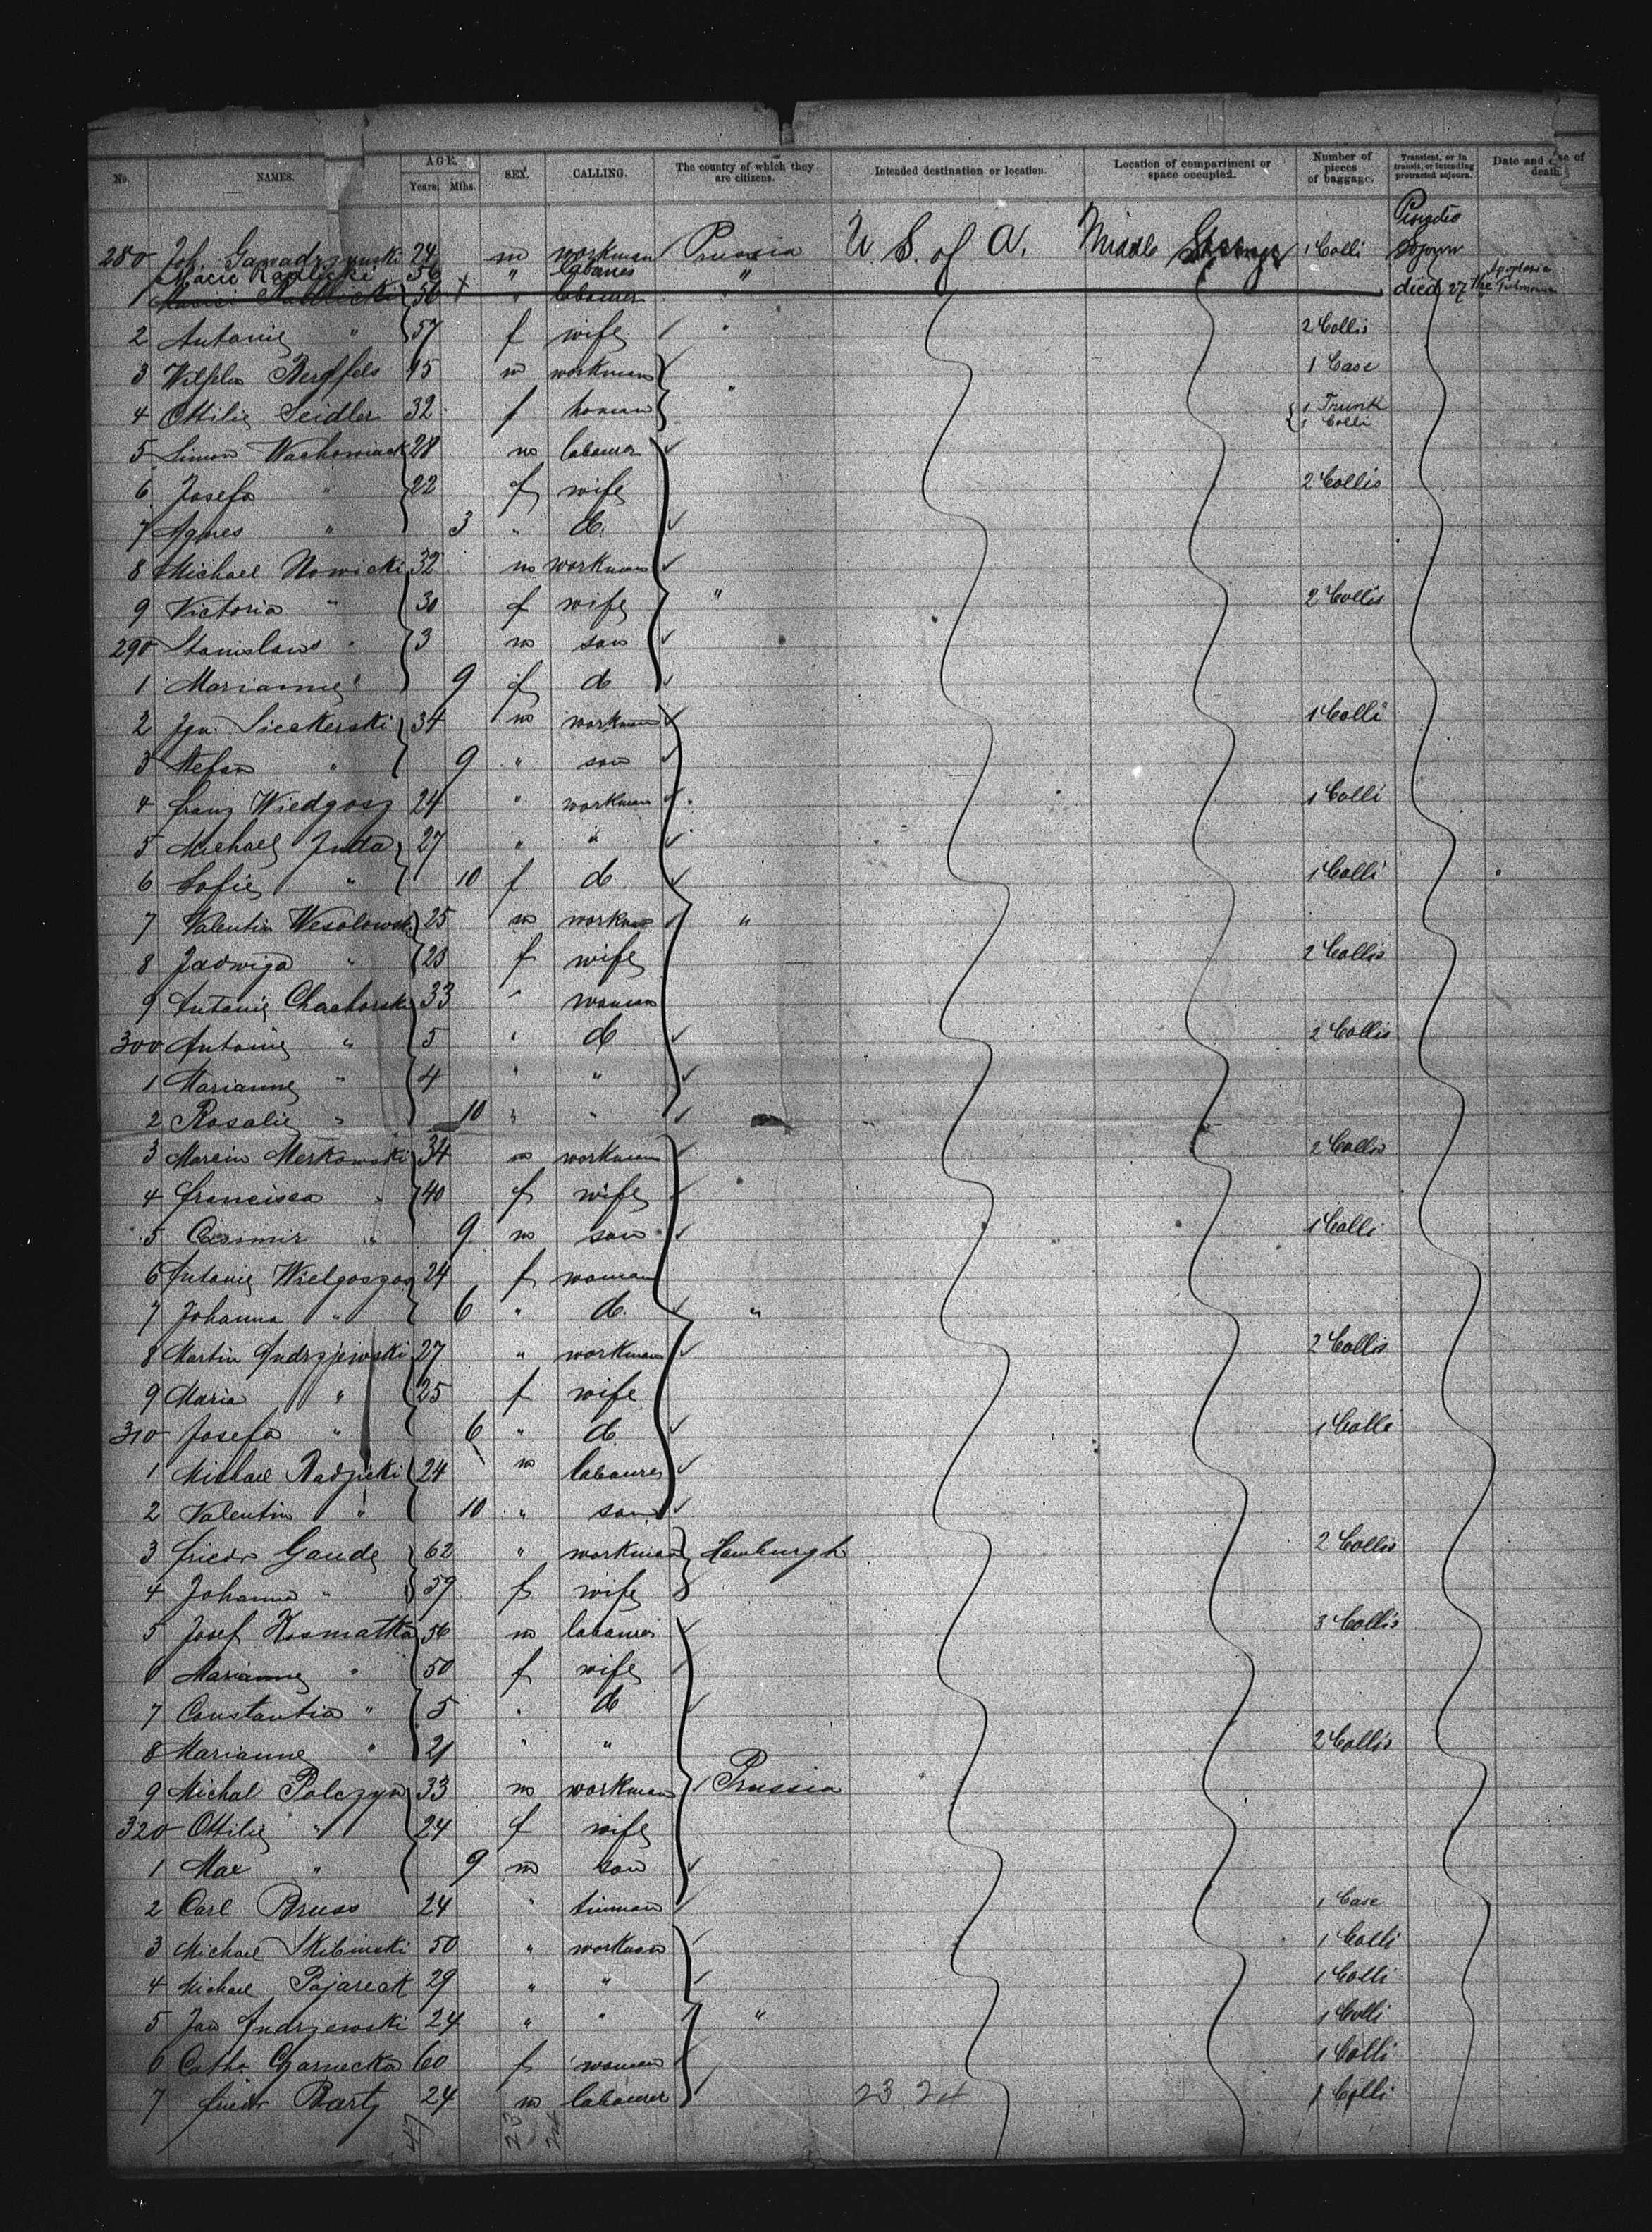 No. NAMES. AGE. Years. Mths. SEX. CALLING. The country of which they are citizens. Intended destination or location. Location of compartment or space occupied. Number of pieces of baggage. Transient, or in transit, or intending protracted sojourn. Date and of death.
280 Joh. 24 m workman Prussia U. S. of A. Middle Steerage 1 Colli Sojourn
Macic Radlicki 56 " "
1 56 + " labourer " died 27 the
2 Antonie " 57 f wife " 2 Collis
3 Wilhln Bergfels 45 m workman " 1 Case
4 Ottilie Seidler 32 f woman 1 Trunk 1 Colli
5 Simon Wachowiack 28 m labourer
6 Josefa " 22 f wife 2 Collis
7 Agnes " 3 " d.
8 Michael Nowicki 32 m workman
9 Victoria " 30 f wife " 2 Collis
290 Stanislaus " 3 m son
1 Marianne " 9 f d
2 Ign. Sieckerski 34 m workman 1 Colli
3 Stefan " 9 " son
4 Franz Wiedgosz 24 " workman 1 Colli
5 Michael Juda 27 " "
6 Sofie " 10 f d 1 Colli
7 Valentin Wesolowski 25 m workman "
8 Jadwiga " 23 f wife 2 Collis
9 Antonie Chachorski 33 " woman
300 Antonie " 5 " d 2 Collis
1 Marianne " 4 " "
2 Rosalie " 10 " "
3 Marcin Merkowski 34 m workman 2 Collis
4 Francisca " 40 f wife
5 Casimir " 9 m son 1 Colli
6 Antonie 24 f woman
7 Johanna " 6 " d. "
8 Martin Andrzjewski 27 " workman 2 Collis
9 Maria " 25 f wife
310 Josefa " 6 " d. 1 Colli
1 Michael 24 m labourer
2 Valentin " 10 " son
3 Friedr Gaude 62 " workman Hamburgh 2 Collis
4 Johanna " 59 f wife
5 Josef Kosmatka 56 m labourer 3 Collis
6 Marianne " 50 f wife
7 Constantia " 5 " d
8 Marianne " 21 " " 2 Collis
9 Michal Polczyn 33 m workman Prussia
320 Ottilie " 24 f wife
1 Max " 9 m son
2 Carl Bruss 24 " tinman 1 Case
3 Michael Skibinski 50 " workman 1 Colli
4 Michael Pajareck 29 " " 1 Colli
5 Jan Andrzewski 24 " " " 1 Colli
6 Cathr Czarnecka 60 f woman 1 Colli
7 Friedr Bartz 24 m labourer 23.24 1 Colli
47 23 24